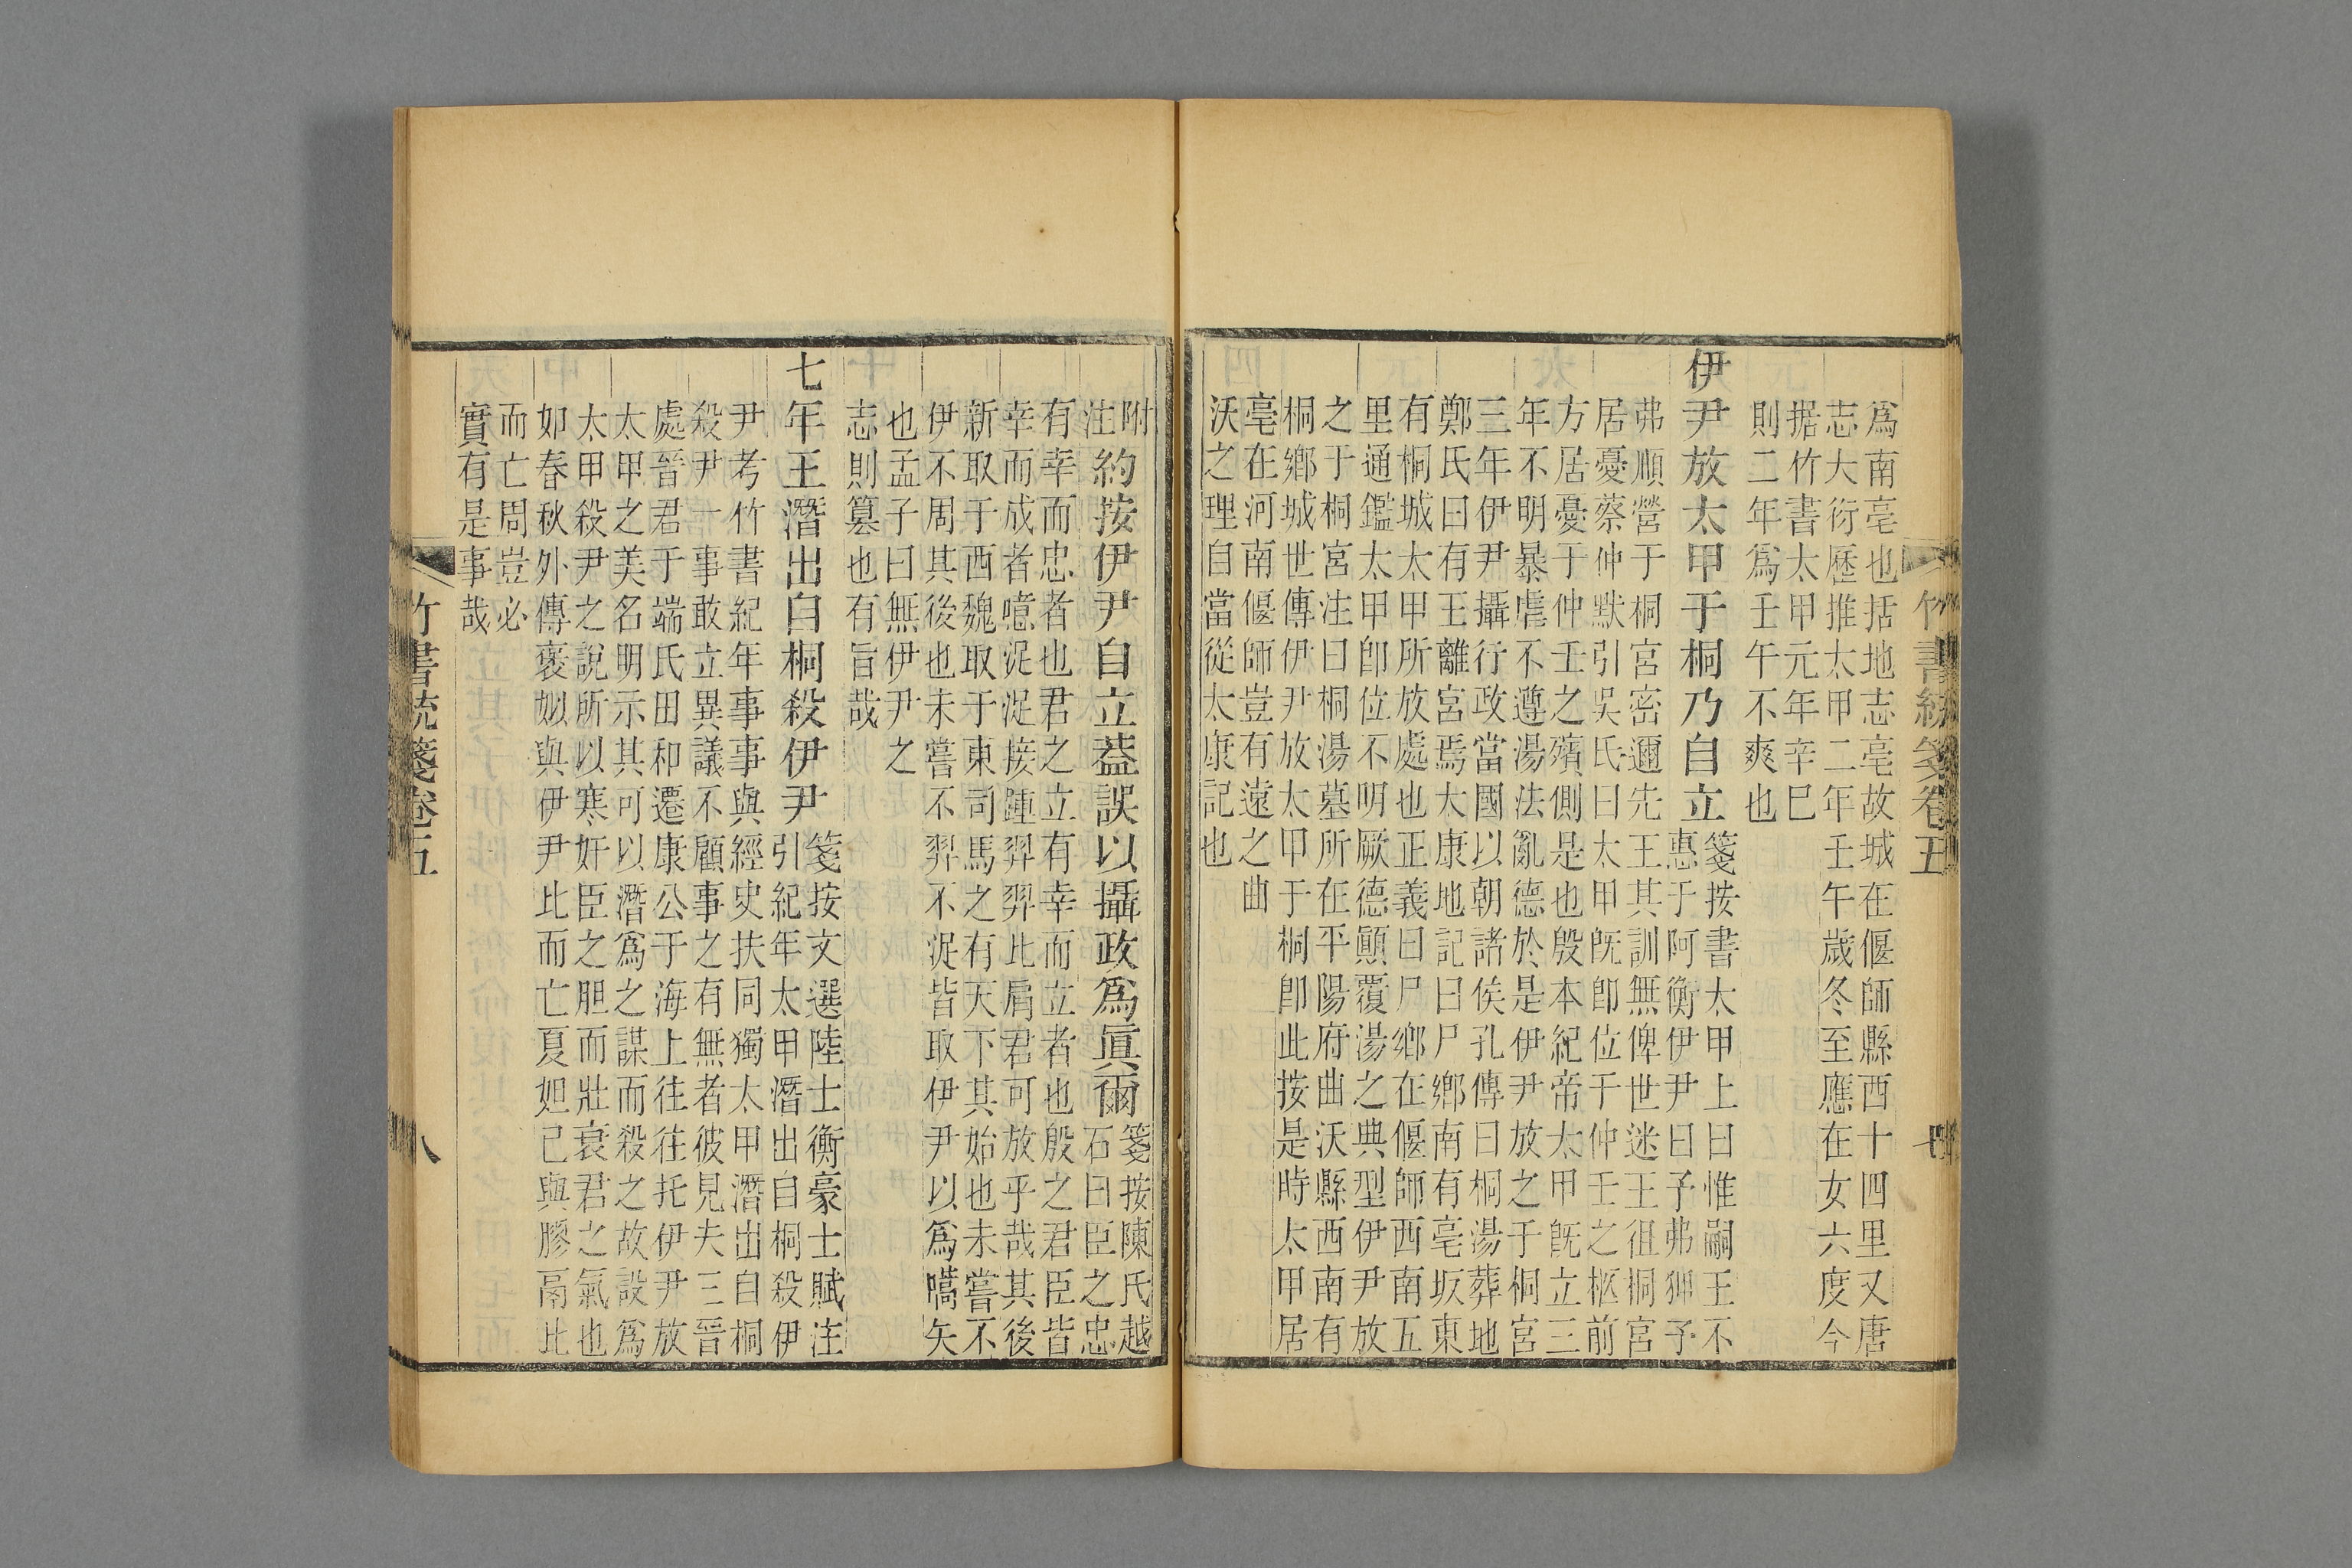 竹書統箋卷五
七
爲南亳也括地志亳故城在偃師縣西十四里又唐
志大衍歷推太甲二年壬午歳冬至應在女六度今
据竹書太甲元年辛巳
則二年爲壬午不爽也
伊尹放太甲于桐乃自立
箋按書太甲上曰惟嗣王不
惠于阿衡伊尹曰予弗狎予
弗順營于桐宮密邇先王其訓無俾世迷王徂桐宮
居憂蔡仲默引吳氏曰太甲旣卽位于仲壬之柩前
方居憂于仲壬之殯側是也殷本紀帝太甲旣立三
年不明暴虐不遵湯法亂德於是伊尹放之于桐宮
三年伊尹攝行政當國以朝諸侯孔傳曰桐湯葬地
鄭氏曰有王離宮焉太康地記曰尸鄉南有亳坂東
有桐城太甲所放處也正義曰尸鄉在偃師西南五
里通鑑太甲卽位不明厥德顚覆湯之典型伊尹放
之于桐宮注曰桐湯墓所在平陽府曲沃縣西南有
桐鄉城世傳伊尹放太甲于桐卽此按是時太甲居
亳在河南偃師豈有遠之曲
沃之理自當從太康記也
附
注
約按伊尹自立葢誤以攝政爲眞爾
箋按陳氏越
石曰臣之忠
有幸而忠者也君之立有幸而立者也殷之君臣皆
幸而成者噫浞浞接踵羿羿比肩君可放乎哉其後
新取于西魏取于東司馬之有天下其始也未嘗不
伊不周其後也未嘗不羿不浞皆取伊尹以爲嚆矢
也孟子曰無伊尹之
志則簒也有旨哉
七年王潛出自桐殺伊尹
箋按文選陸士衡豪士賦注
引紀年太甲潛出自桐殺伊
尹考竹書紀年事事與經史扶同獨太甲潛出自桐
殺尹一事敢立異議不顧事之有無者彼見夫三晉
處晉君于端氏田和遷康公于海上往往托伊尹放
太甲之美名明示其可以潛爲之謀而殺之故設爲
太甲殺尹之說所以寒奸臣之胆而壯衰君之氣也
如春秋外傳褒姒與伊尹比而亡夏妲己與膠鬲比
而亡周豈必
實有是事哉
竹書統箋卷五
八